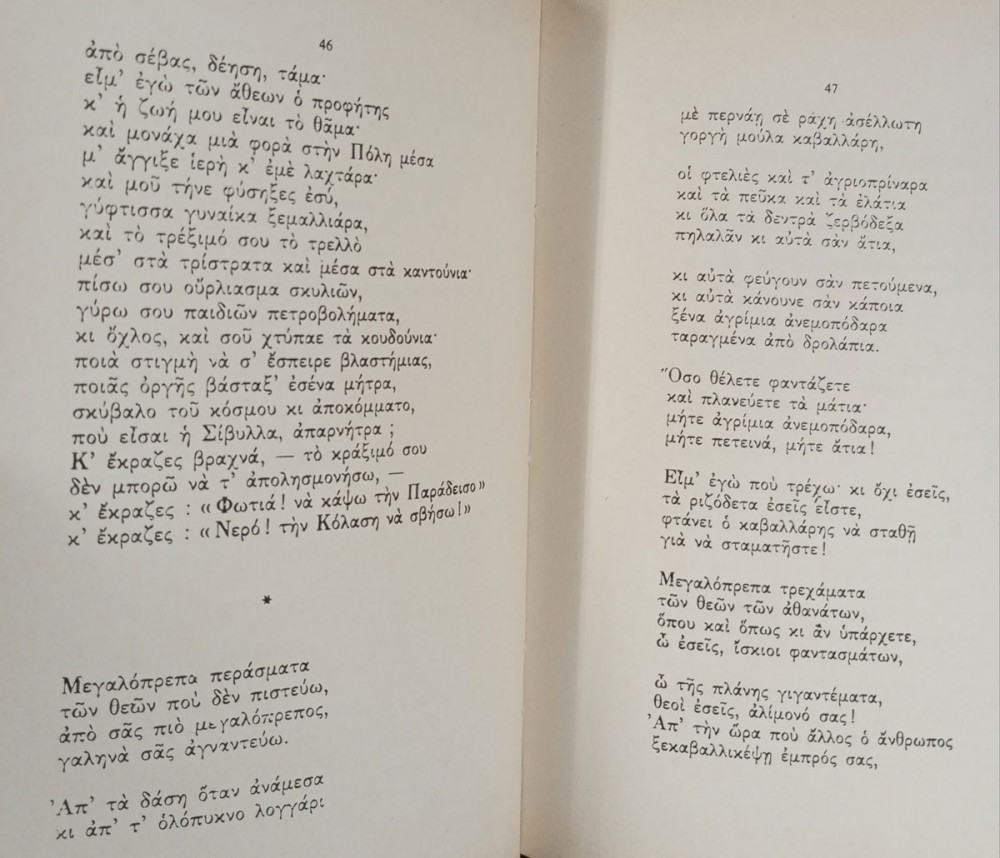 46
ἀπὸ σέβας, δέηση, τάμα·
εἶμ' ἐγὼ τῶν ἄθεων ὁ προφήτης
κ' ἡ ζωή μου εἶναι τὸ θᾶμα·
καὶ μονάχα μιὰ φορὰ στὴν Πόλη μέσα
μ' ἄγγιξε ἱερὴ κ' ἐμὲ λαχτάρα·
καὶ μοῦ τήνε φύσηξες ἐσύ,
γύφτισσα γυναίκα ξεμαλλιάρα,
καὶ τὸ τρέξιμό σου τὸ τρελλὸ
μέσ' στὰ τρίστρατα καὶ μέσα στὰ καντούνια·
πίσω σου οὔρλιασμα σκυλιῶν,
γύρω σου παιδιῶν πετροβολήματα,
κι ὄχλος, καὶ σοῦ χτύπαε τὰ κουδούνια·
ποιὰ στιγμὴ νὰ σ' ἔσπειρε βλαστήμιας,
ποιᾶς ὀργῆς βάσταξ' ἐσένα μήτρα,
σκύβαλο τοῦ κόσμου κι ἀποκόμματο,
ποὺ εἶσαι ἡ Σίβυλλα, ἀπαρνήτρα ;
Κ' ἔκραζες βραχνά, — τὸ κράξιμό σου
δὲν μπορῶ νὰ τ' ἀπολησμονήσω, —
κ' ἔκραζες : «Φωτιά! νὰ κάψω τὴν Παράδεισο»
κ' ἔκραζες : «Νερό! τὴν Κόλαση νὰ σβήσω!»
*
Μεγαλόπρεπα περάσματα
τῶν θεῶν ποὺ δὲν πιστεύω,
ἀπὸ σᾶς πιὸ μεγαλόπρεπος,
γαληνὰ σᾶς ἀγναντεύω.
Ἀπ' τὰ δάση ὅταν ἀνάμεσα
κι ἀπ' τ' ὁλόπυκνο λογγάρι
47
μὲ περνάῃ σὲ ράχη ἀσέλλωτη
γοργὴ μούλα καβαλλάρη,
οἱ φτελιὲς καὶ τ' ἀγριοπρίναρα
καὶ τὰ πεῦκα καὶ τὰ ἐλάτια
κι ὅλα τὰ δεντρὰ ζερβόδεξα
πηλαλᾶν κι αὐτὰ σὰν ἄτια,
κι αὐτὰ φεύγουν σὰν πετούμενα,
κι αὐτὰ κάνουνε σὰν κάποια
ξένα ἀγρίμια ἀνεμοπόδαρα
ταραγμένα ἀπὸ δρολάπια.
Ὅσο θέλετε φαντάζετε
καὶ πλανεύετε τὰ μάτια·
μήτε ἀγρίμια ἀνεμοπόδαρα,
μήτε πετεινά, μήτε ἄτια!
Εἶμ' ἐγὼ ποὺ τρέχω· κι ὄχι ἐσεῖς,
τὰ ριζόδετα ἐσεῖς εἶστε,
φτάνει ὁ καβαλλάρης νὰ σταθῇ
γιὰ νὰ σταματῆστε!
Μεγαλόπρεπα τρεχάματα
τῶν θεῶν τῶν ἀθανάτων,
ὅπου καὶ ὅπως κι ἂν ὑπάρχετε,
ὦ ἐσεῖς, ἴσκιοι φαντασμάτων,
ὦ τῆς πλάνης γιγαντέματα,
θεοὶ ἐσεῖς, ἀλίμονό σας!
Ἀπ' τὴν ὥρα ποὺ ἄλλος ὁ ἄνθρωπος
ξεκαβαλλικέψῃ ἐμπρός σας,